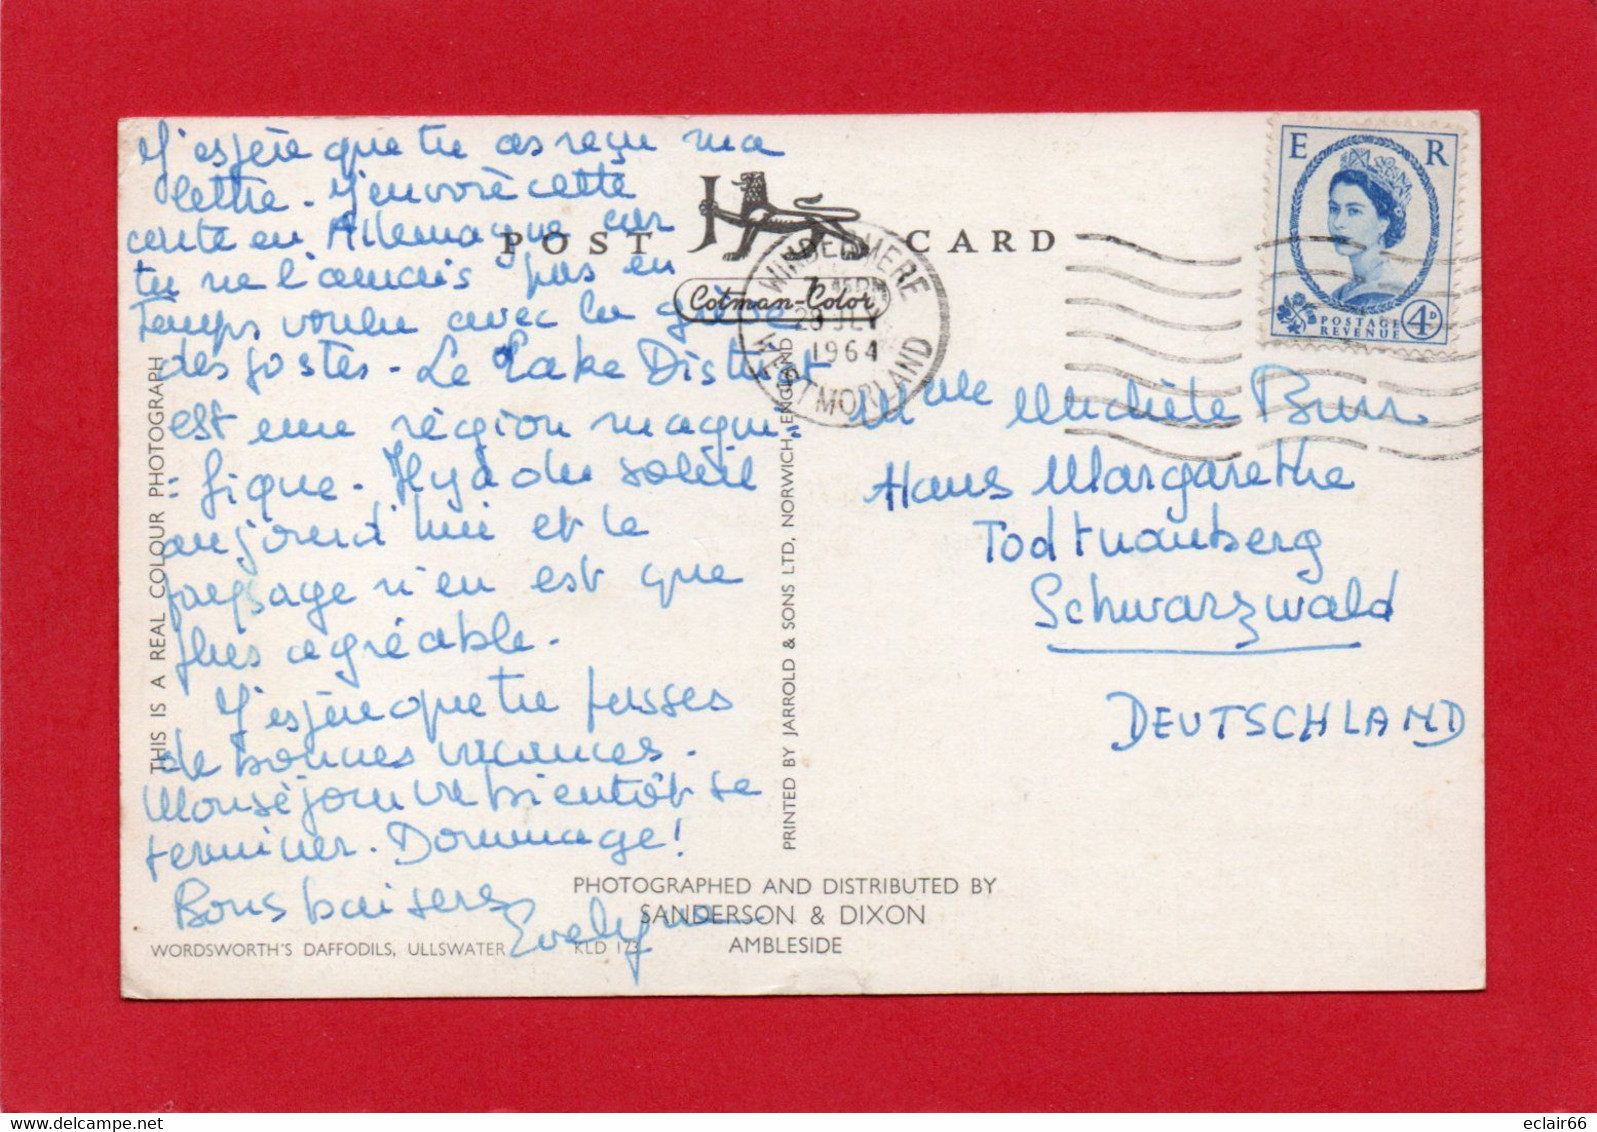 J'espère que tu as reçu ma
lettre. J'envoie cette
carte en Allemagne car
tu ne l'aurais pas en
temps voulu avec la grève
des postes. Le Lake District
est une région magni=
=fique. Il y a du soleil
aujourd'hui et le
paysage n'en est que
plus agréable.
J'espère que tu passes
de bonnes vacances.
Mon séjour va bientôt se
terminer. Dommage!
Bons baisers
Evelyne
POST CARD
Cotman-Color
WINDERMERE
1964
WESTMORLAND
E R
POSTAGE
REVENUE
4D
Melle Michèle
Haus Margarethe
Todtnauberg
Schwarzwald
DEUTSCHLAND
THIS IS A REAL COLOUR PHOTOGRAPH
PRINTED BY JARROLD & SONS LTD, NORWICH, ENGLAND
PHOTOGRAPHED AND DISTRIBUTED BY
SANDERSON & DIXON
AMBLESIDE
WORDSWORTH'S DAFFODILS, ULLSWATER
KLD 173
delcampe.net
eclair66